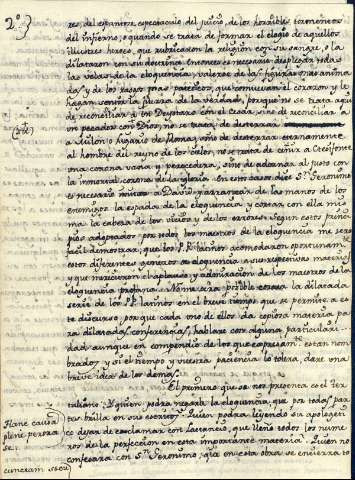 res, del espantoso espectaculo del juicio, de los horribles tormentos
del infierno, o quando se trata de formar el elogio de aquellos
illustres heroes, que rubricaron la religion con su sangre, o la
dilataron con su doctrina. Entonces es necesario desplegar todas
las velas de la eloquencia, valerse de las figuras mas anima
das, y de los rasgos mas pateticos, que conmuevan el corazon y le
hagan sentir la fuerza de la verdad, porque no se trata aqui
de reconciliar a un con el Cesar, sino de reconciliar a
un pecador con Dios, no se trata de desterrar
a Milon o Ligario de Roma, sino de desterrar eternamente
al hombre del reyno de los cielos, no se trata de ceñir a Ctesifonte
una corona vana y perecedera, sino de adornar al justo con
la inmortal corona de la gloria. En este caso dice Sn. Geronimo
es necesario a David arrancar de las manos de los
enemigos la espada de la eloquencia y cortar con ella mis
ma la cabeza de los vicios y de los errores. Segun estos princi
pios adoptados por todos los maestros de la eloquencia me sera
facil demostrar, que los P.P. latinos acomodaron oportunam.te
estos diferentes generos de eloquencia a sus respectivas materias
y que merecieron el aplauso y admiracion de los maestros de la
eloquencia profana. No me sera posible la dilatada
serie de los P.P. latinos en el breve tiempo que se permite a es
te discurso, porque cada uno de ellos da copiosa materia pa
ra dilatadas conferencias, hablare con alguna particulari
dad aunque en compendio de los que expresam.te estan nom
brados, y si el tiempo y vuestra paciencia lo tolera, dare una
breve idea de los demas.
El primero que se nos presenta es el Ter
tuliano. Y quien podra negarle la eloquencia, que por todas par
tes brilla en sus escritos? Quien podra leyendo su apologeti
co dejar de exclamar con Lactancio, que llenó todos los nume
ros de la perfeccion en esta importante materia? Quien no
confesara con Sn. Geronimo, que en esta obra se encierra to
Hanc causam
plene perora